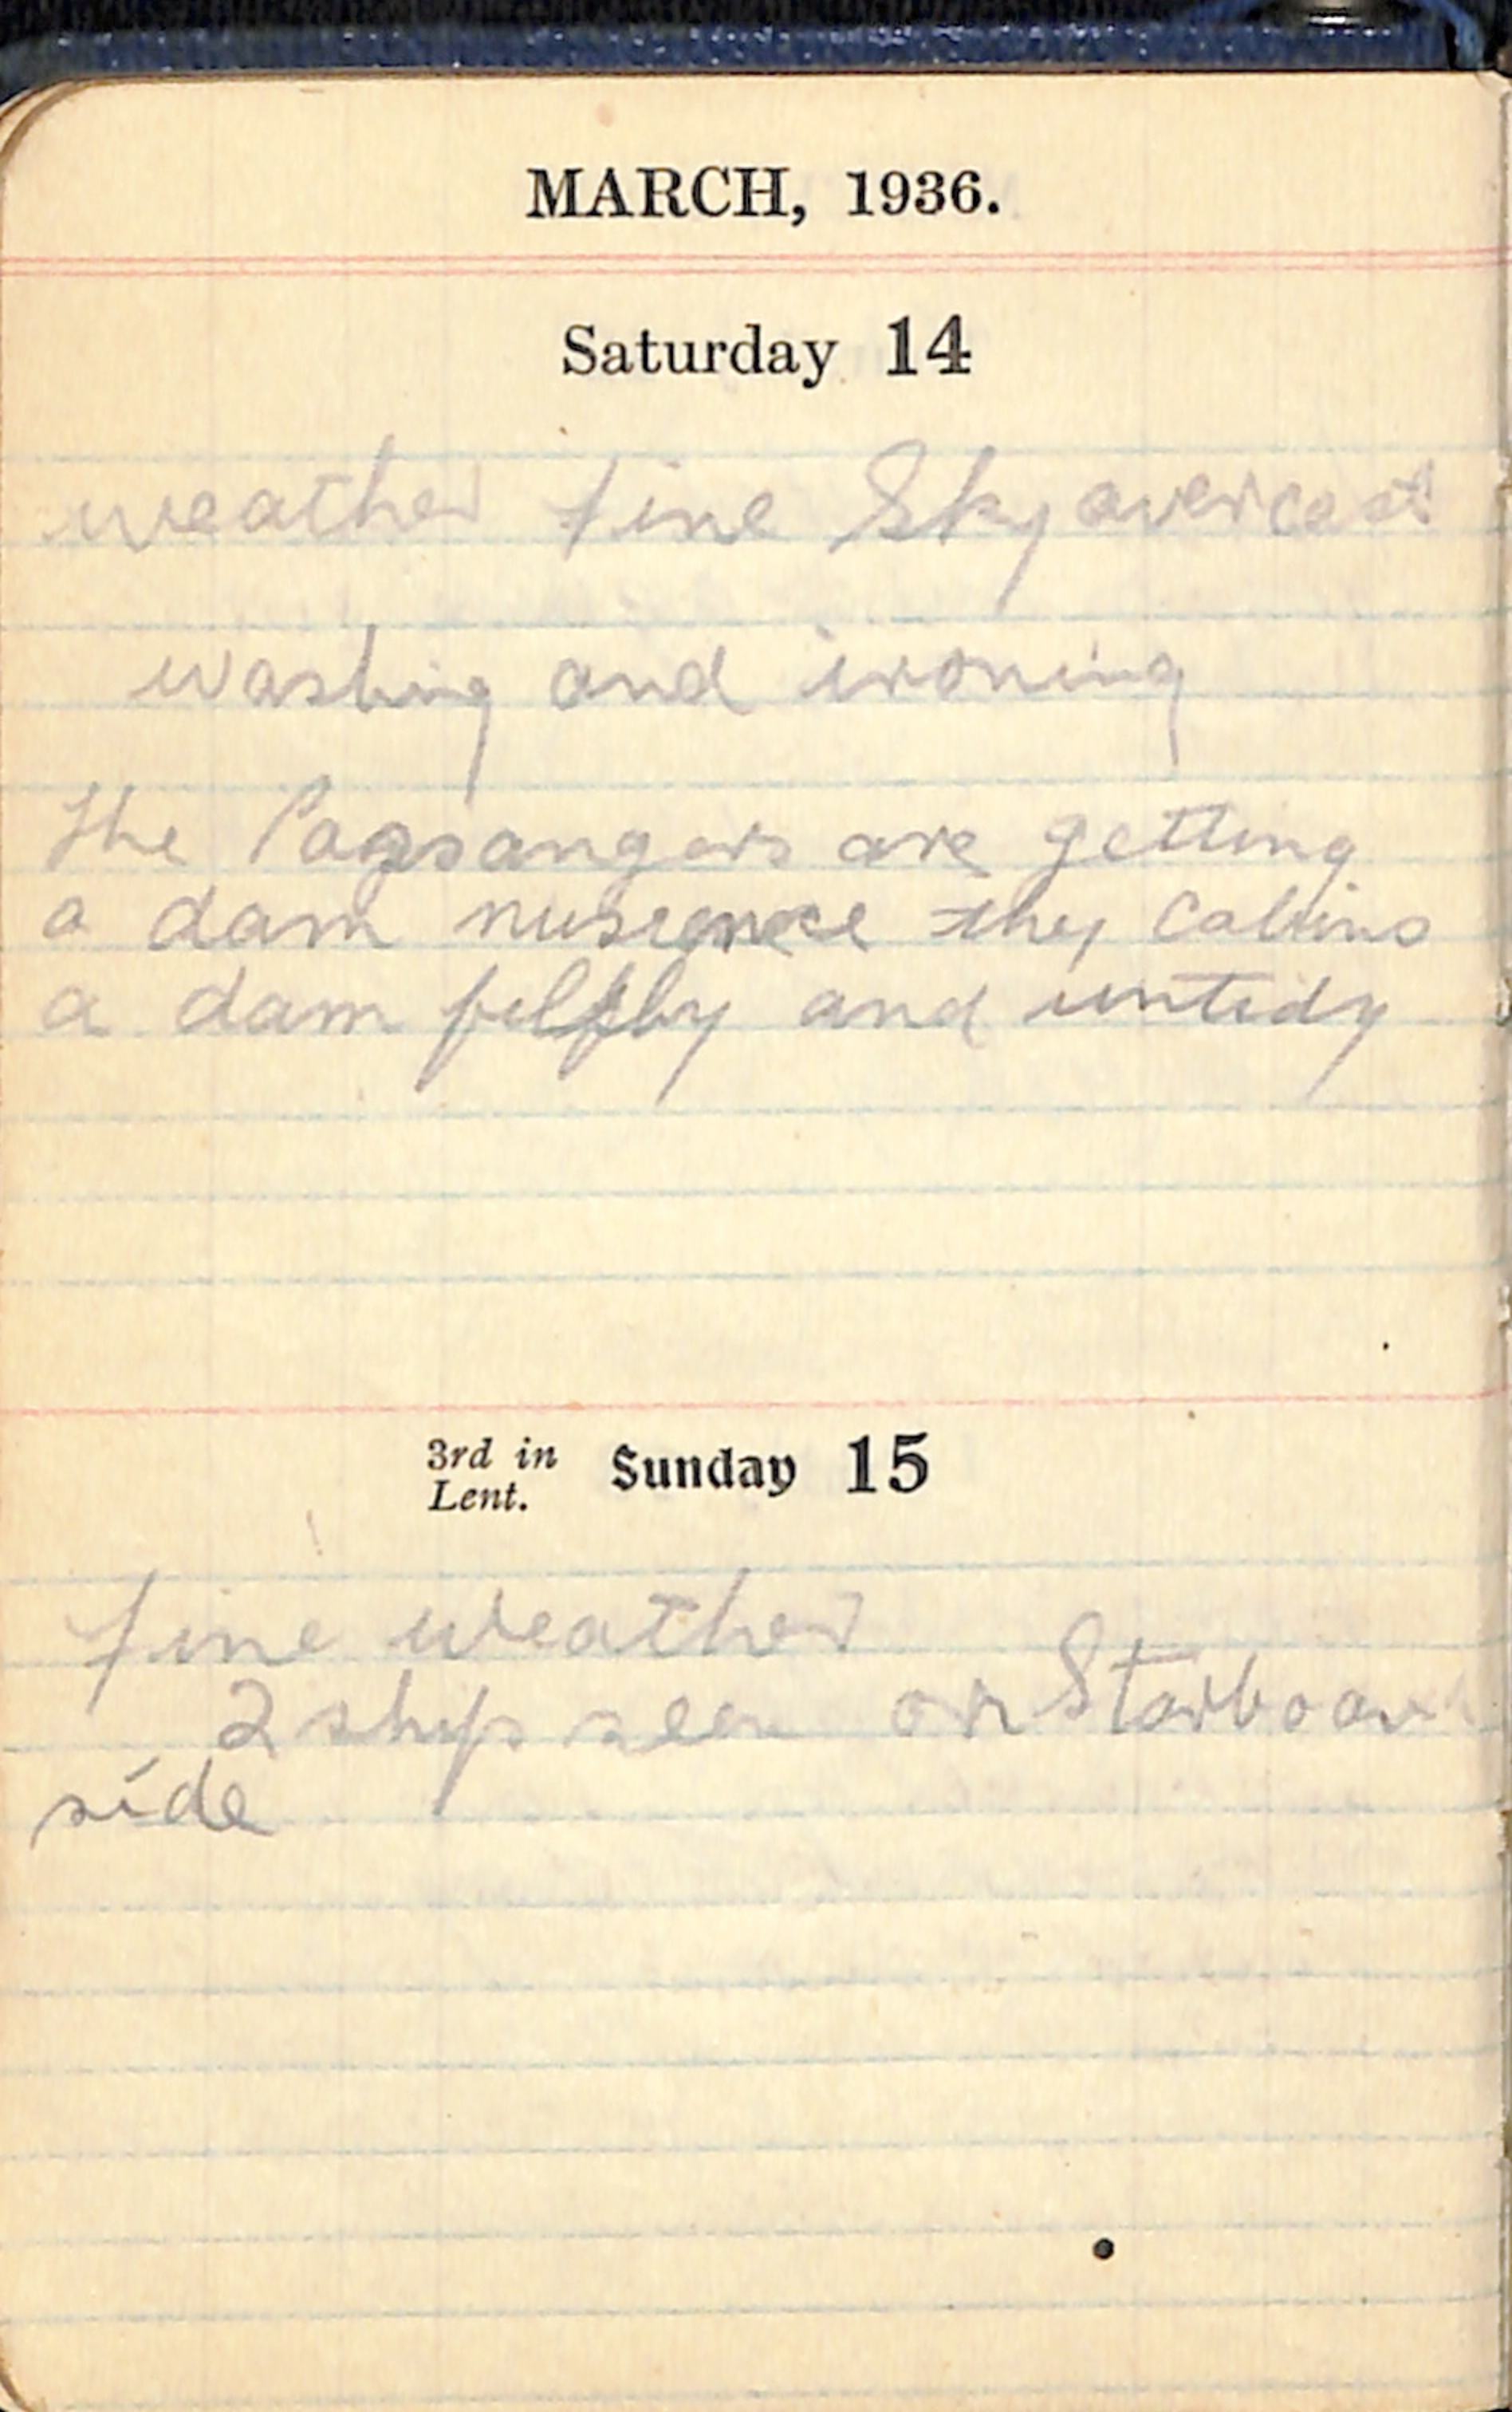 MARCH, 1936.
Saturday 14
weather fine Sky overcast
washing and ironing
The Passangers are getting
a dam nusience they Cabins
a dam felfhy and untidy
3rd in Lent. Sunday 15
fine weather
2 ships seen on Starboard
side